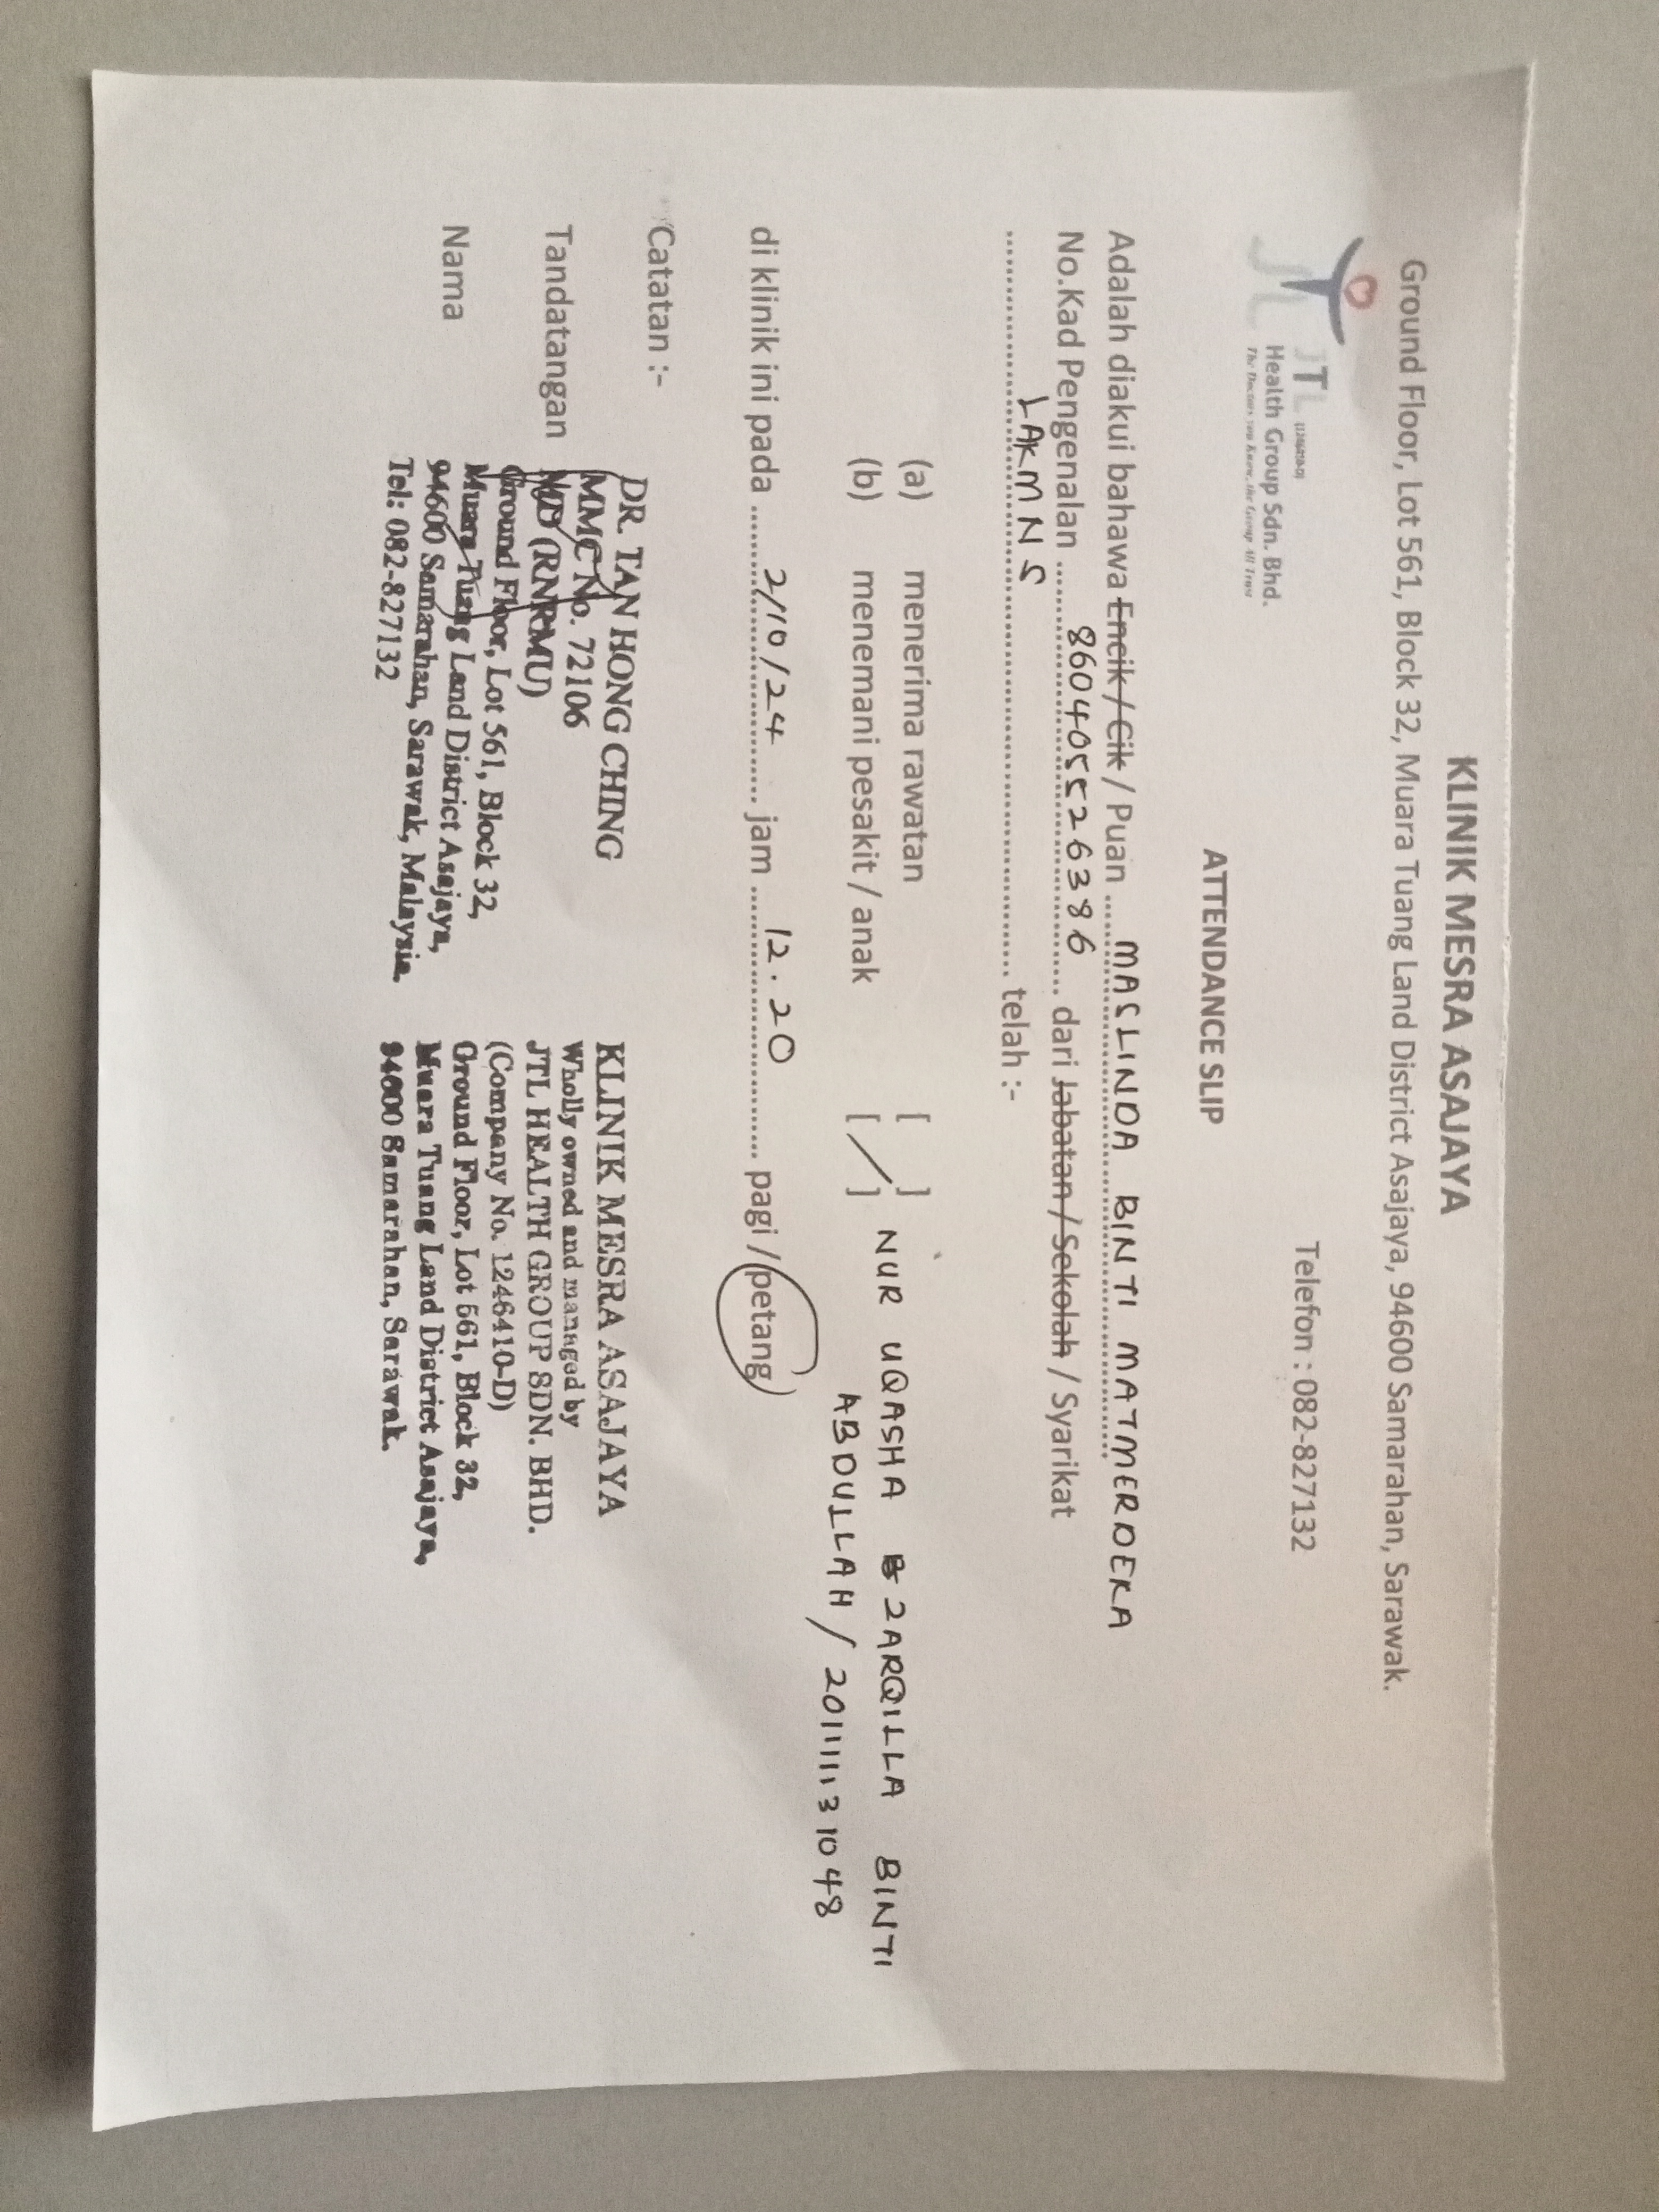 KLINIK MESRA ASAJAYA
Ground Floor, Lot 561, Block 32, Muara Tuang Land District Asajaya, 94600 Samarahan, Sarawak.
JTL (1246410-D)
Health Group Sdn. Bhd.
The Doctors you Know, the Group All Trust
Telefon : 082-827132
ATTENDANCE SLIP
Adalah diakui bahawa Encik / Cik / Puan MASLINDA BINTI MATMERDEKA
No.Kad Pengenalan 860405526386 dari Jabatan / Sekolah / Syarikat
LAKMNS telah :-
(a) menerima rawatan [ ]
(b) menemani pesakit / anak [ / ] NUR UQASHA ZARQILLA BINTI
ABDULLAH / 201111131048
di klinik ini pada 2/10/24 jam 12.20 pagi / petang
Catatan :-
Tandatangan
Nama
DR. TAN HONG CHING
MMC No. 72106
MD (RNRMU)
Ground Floor, Lot 561, Block 32,
Muara Tuang Land District Asajaya,
94600 Samarahan, Sarawak, Malaysia.
Tel: 082-827132
KLINIK MESRA ASAJAYA
Wholly owned and managed by
JTL HEALTH GROUP SDN. BHD.
(Company No. 1246410-D)
Ground Floor, Lot 561, Block 32,
Muara Tuang Land District Asajaya,
94600 Samarahan, Sarawak.